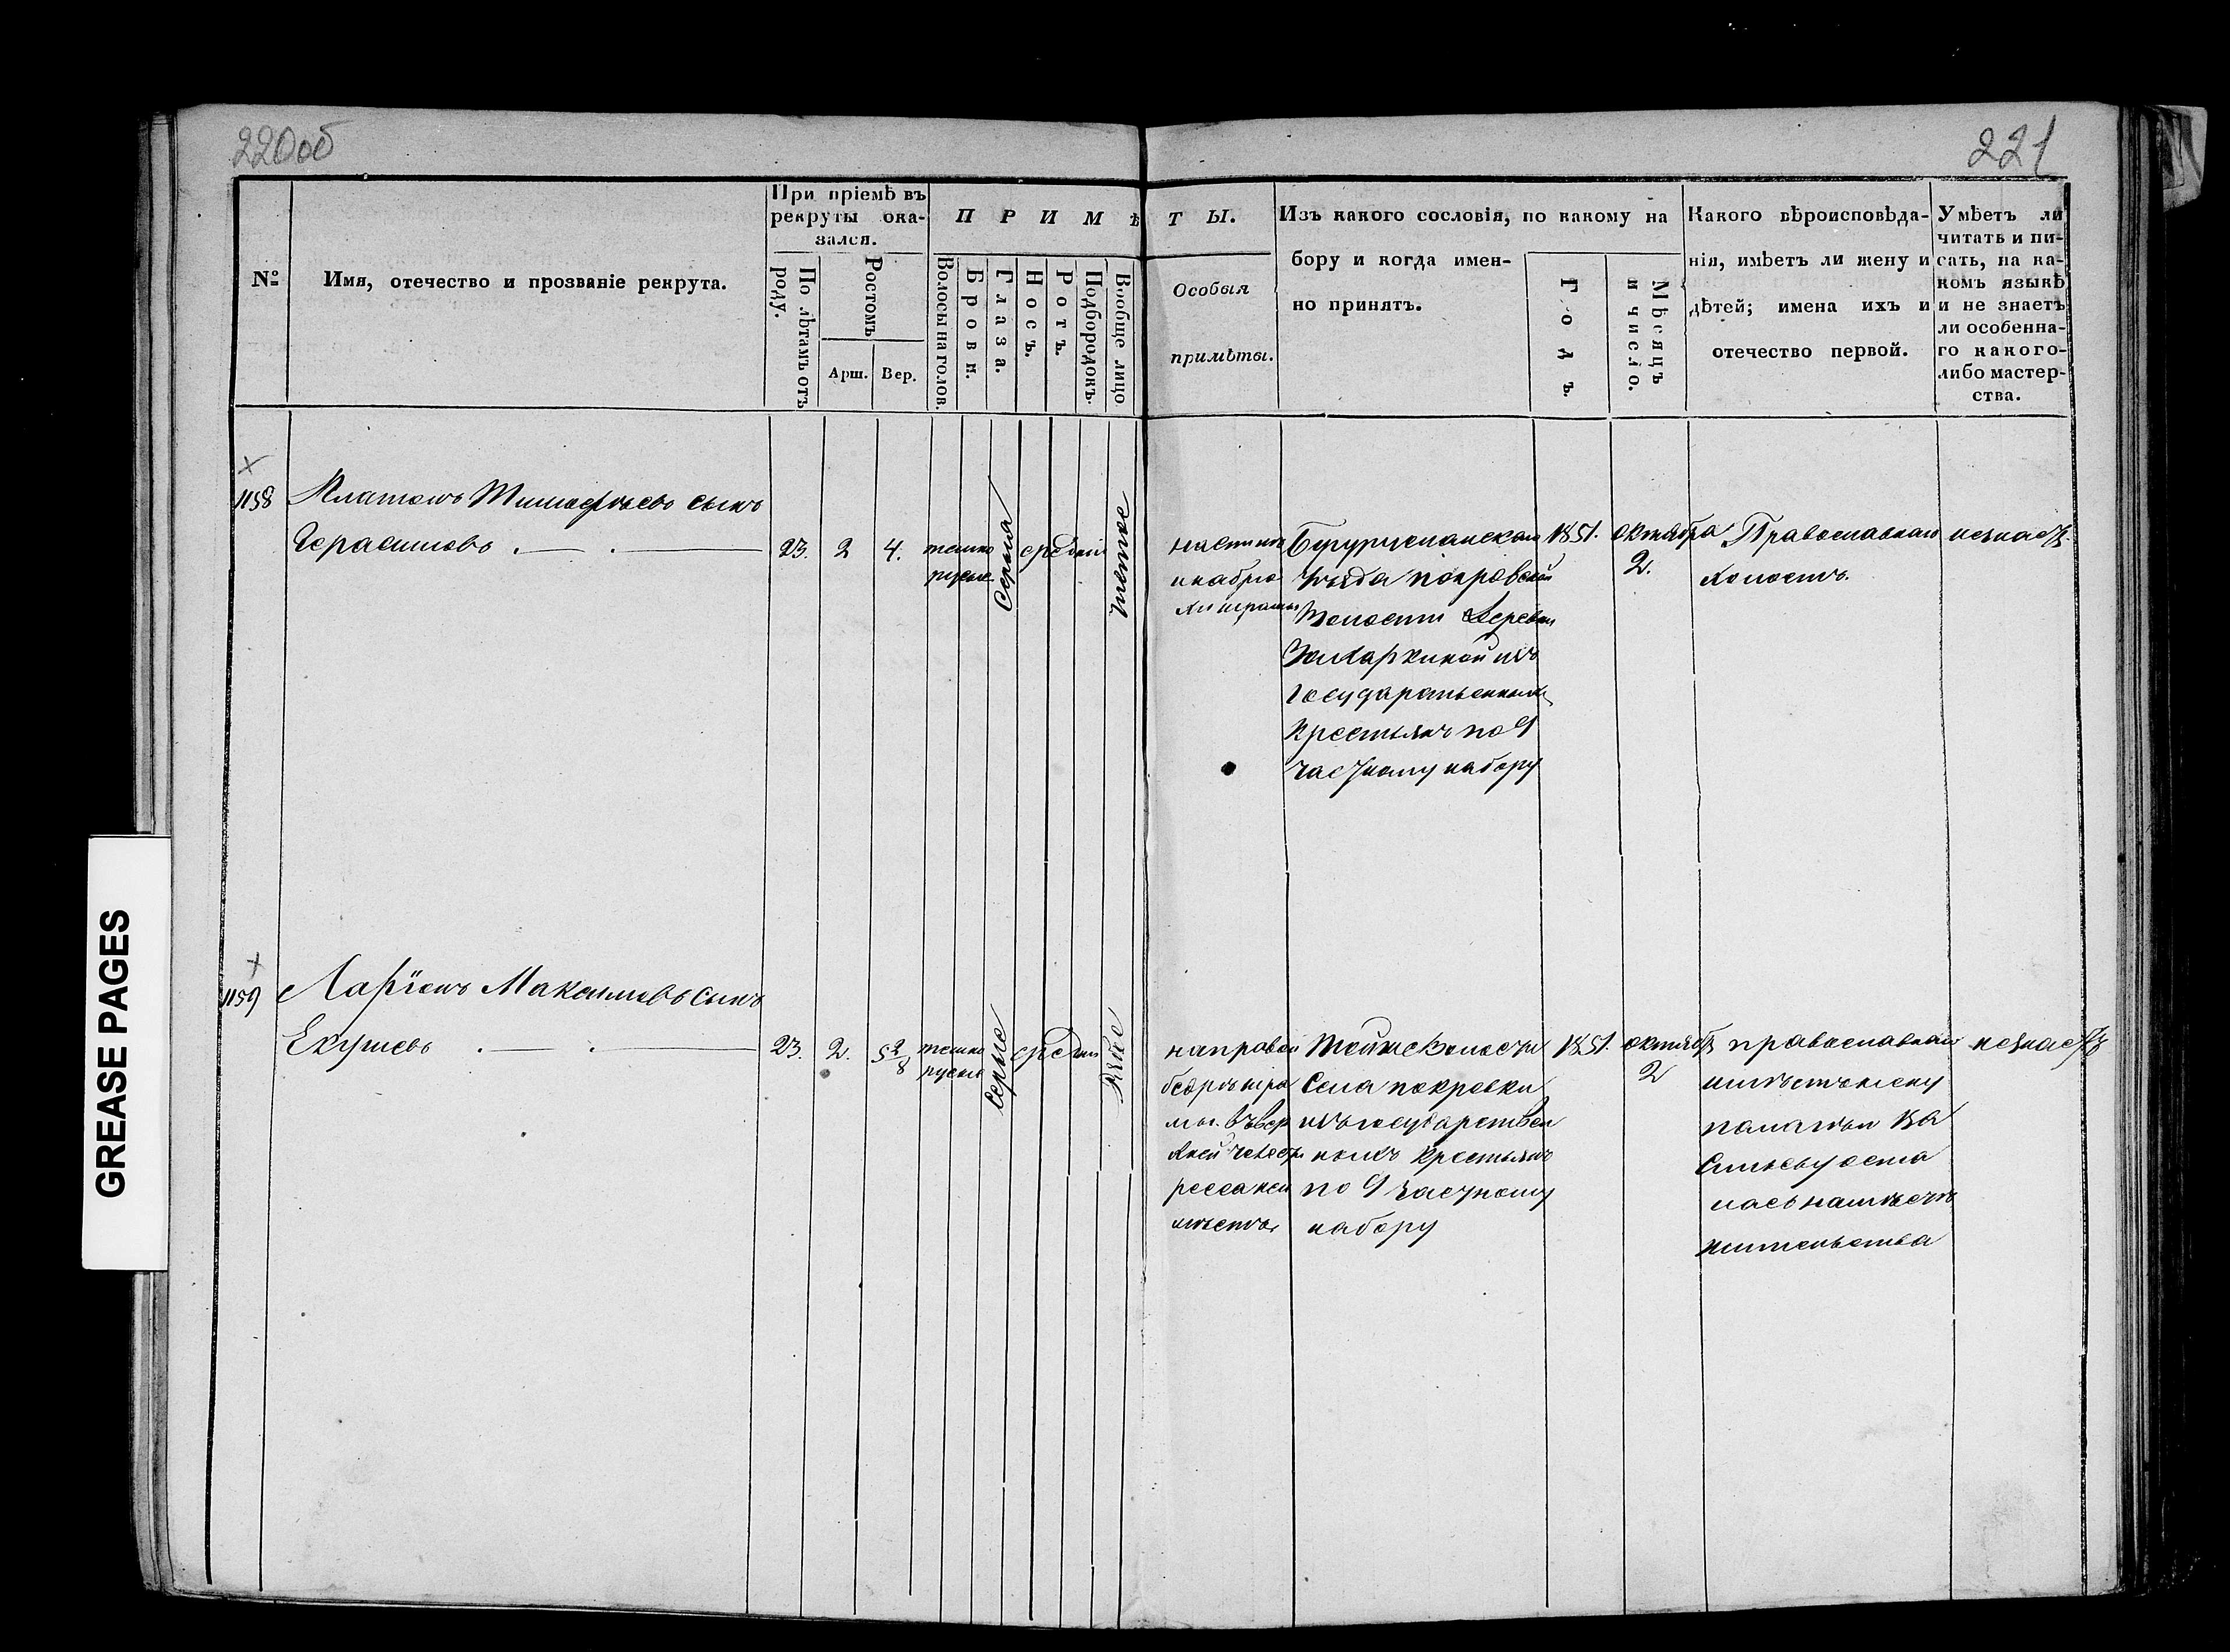 220 об
221
№
Имя, отечество и прозваніе рекрута.
При пріемѣ въ
рекруты ока-
зался.
По лѣтамъ отъ
роду.
Ростомъ
Арш.
Вер.
ПРИМѢТЫ.
Волосы на голов.
Брови.
Глаза.
Носъ.
Ротъ.
Подбородокъ.
Вообще лицо
Особыя
примѣты.
Изъ какого сословія, по какому на
бору и когда имен-
но принятъ.
Годъ.
Мѣсяцъ
и число.
Какого вѣроисповѣда-
нія, имѣетъ ли жену и
дѣтей; имена ихъ и
отечество первой.
Умѣетъ ли
читать и пи-
сать, на ка-
комъ языкѣ
и не знаетъ
ли особенна-
го какого-
либо мастер-
ства.
1158
Платонъ Тимофѣевъ сынъ
Герасимовъ
23.
2
4.
темно
русые
средній
на спинѣ
Бугурусланскаго
уѣзда покровской
Волости Деревни
изъ
Государственныхъ
Крестьянъ по 9
частному набору
1851.
октября
2.
Православнаго
холостъ.
незнаетъ.
1159
Ларіонъ Максимовъ Сынъ
23.
2.
5 2/8
темно
русые
Серые
средній
на правой
бедрѣ
мы. въ вер
хней
мѣста
Тойже Волости
Села покровки
изъ государствен
ныхъ Крестьянъ
по 9 частному
набору
1851.
октября
2
православнаго
имѣетъ жену
Ва
сильеву оста
лась на мѣстѣ
жительства
незнаетъ
GREASE PAGES